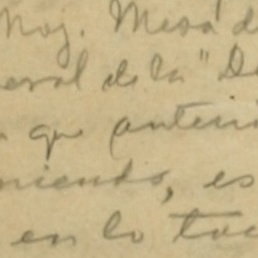 Moj. Mesa d
eral de la "D
que anteri
niendo, es
en lo toc